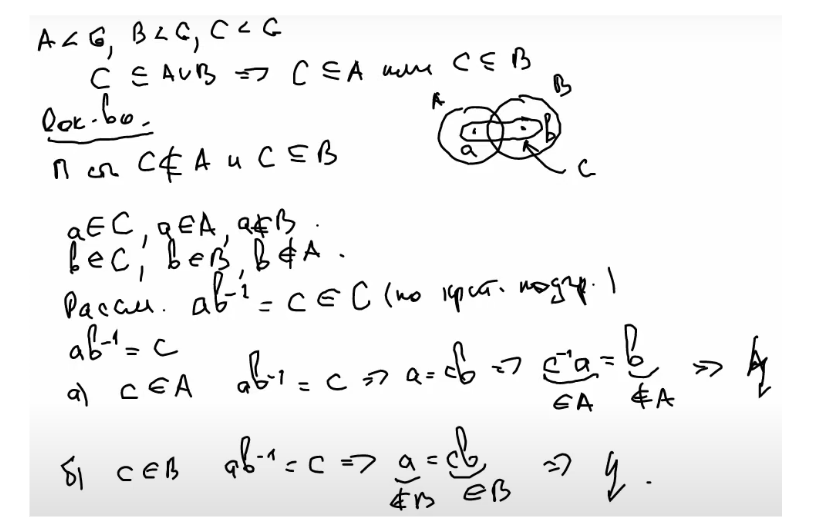 A < G, B < G, C < G
C ⊆ A∪B => C ⊆ A или C ⊆ B
Док-во.
A
B
a
b
C
П сп C⊄A и C ⊆ B
a∈C, a∈A, a∉B.
b∈C, b∈B, b∉A.
Рассм. ab⁻¹ = c ∈ C (по крит. подгр.)
ab⁻¹ = c
а) c∈A ab⁻¹ = c => a = cb => c⁻¹a = b =>
∈A ∉A
б) c∈B ab⁻¹ = c => a = cb =>
∉B ∈B